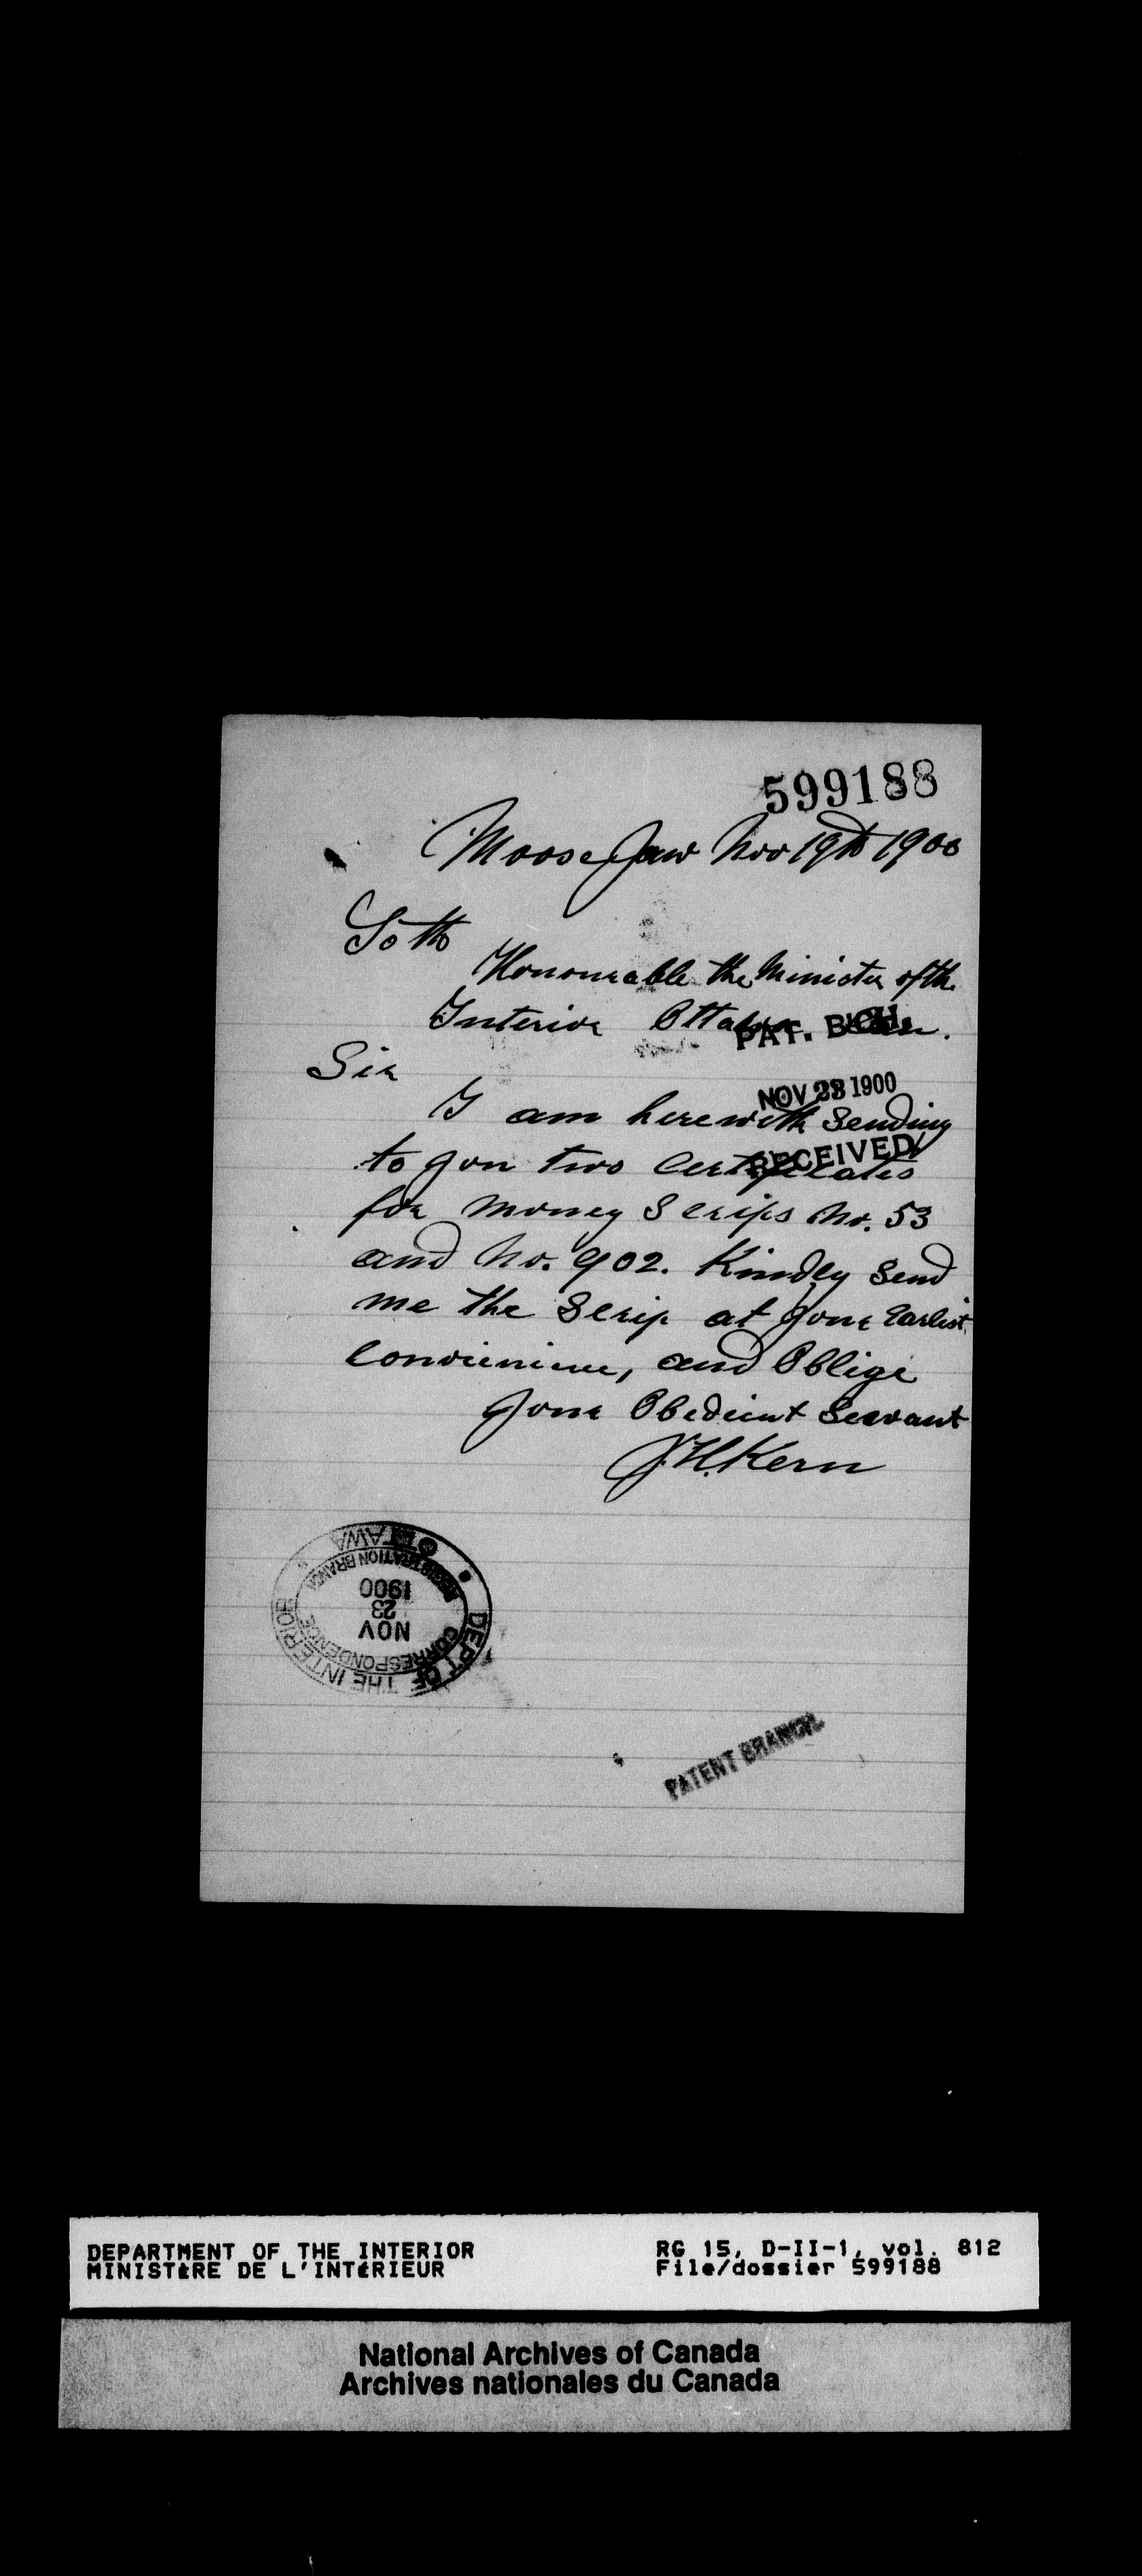 599188
Moose Jaw Nov 19th 1900
To the
Honourable the Minister of the
Interior Ottawa
PAT. BCH.
Sir
NOV 23 1900
I am herewith sending
RECEIVED
to you two Certificates
for money Scrips No. 53
and No. 902. Kindly send
me the Scrip at your Earliest
convenience, and Oblige
Your Obedient Servant
J.H. Kern
DEPT OF THE INTERIOR
CORRESPONDENCE
NOV
23
1900
REGISTRATION BRANCH
OTTAWA
PATENT BRANCH.
DEPARTMENT OF THE INTERIOR
MINISTÈRE DE L'INTÉRIEUR
RG 15, D-II-1, vol. 812
File/dossier 599188
National Archives of Canada
Archives nationales du Canada